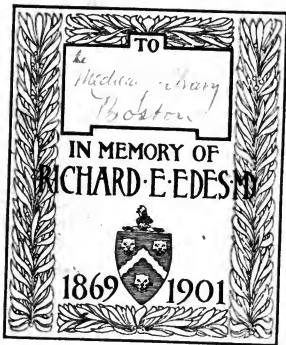 TO
the
Medical Library
Boston
IN MEMORY OF
RICHARD·E·EDES·MD
1869 1901